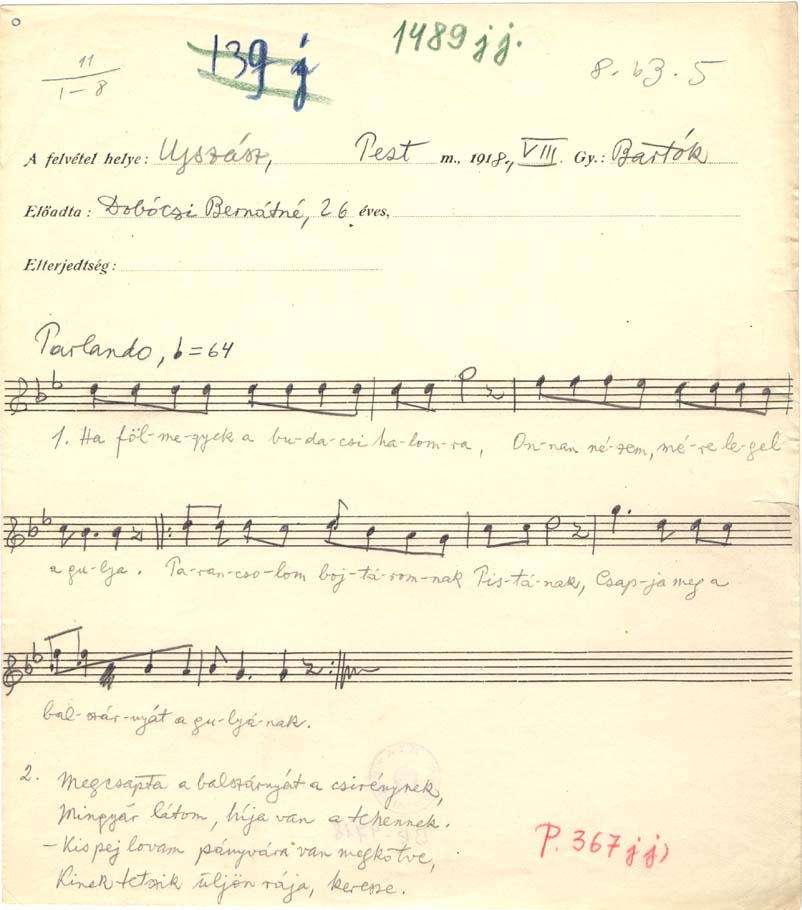 11
1-8
139 j
1489 jj.
8. b3. 5
A felvétel helye: Ujszász, Pest m., 1918, VIII. Gy.: Bartók
Előadta: Dobóczi Bernátné, 26 éves,
Elterjedtség:
Parlando, ♪=64
1. Ha föl-me-gyek a bu-da-csi ha-lom-ra, On-nan né-zem, mé-re le-gel
a gu-lya. Pa-ran-cso-lom boj-tá-rom-nak Pis-tá-nak, Csap-ja meg a
bal-szár-nyát a gu-lyá-nak.
2. Megcsapta a balszárnyát a csirénynek,
Mingyár látom, híja van a tehennek.
- Kis pej lovam pányvára van megkötve,
Kinek tetszik üljön rája, keresse.
P. 367 jj)